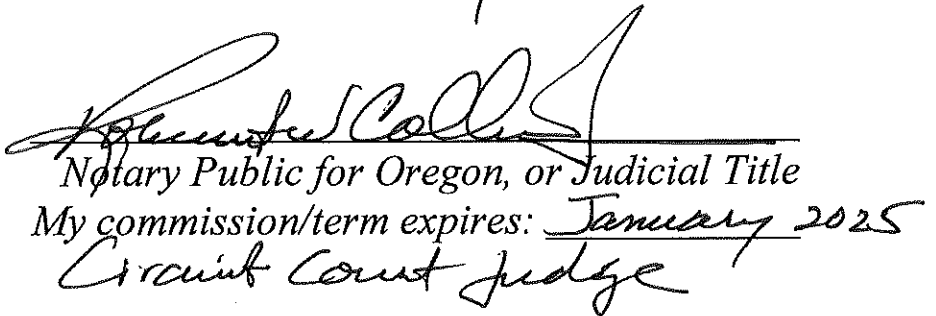 Collins
Notary Public for Oregon, or Judicial Title
My commission/term expires: January 2025
Circuit Court Judge